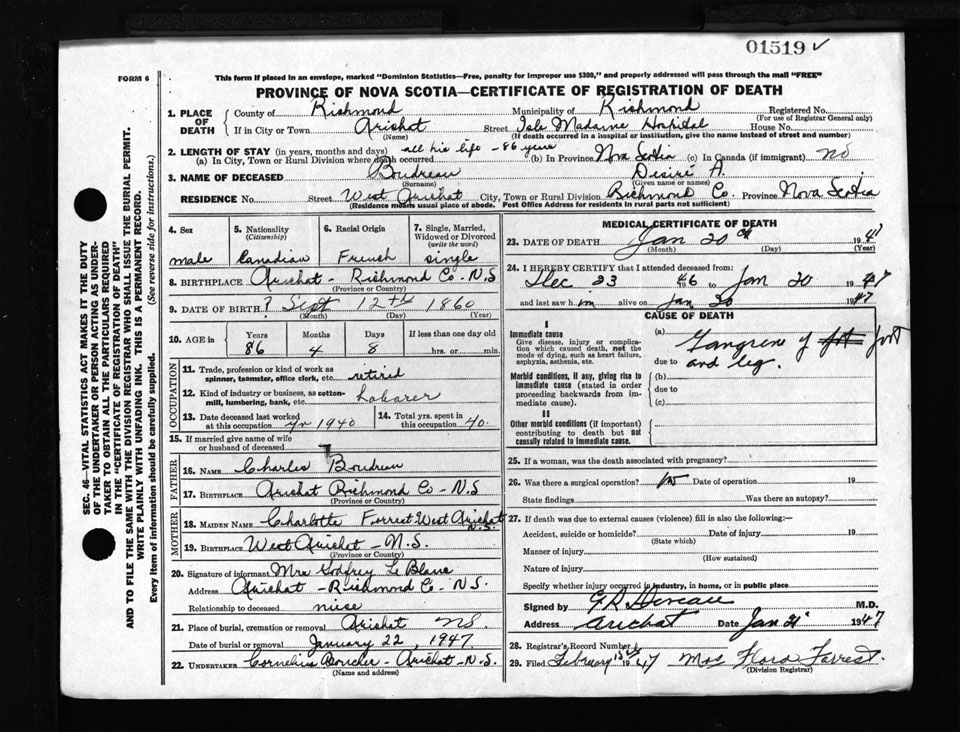 01519 ✓
FORM 6
This form if placed in an envelope, marked "Dominion Statistics—Free, penalty for improper use $300," and properly addressed will pass through the mail "FREE"
PROVINCE OF NOVA SCOTIA—CERTIFICATE OF REGISTRATION OF DEATH
SEC. 46—VITAL STATISTICS ACT MAKES IT THE DUTY
OF THE UNDERTAKER OR PERSON ACTING AS UNDER-
TAKER TO OBTAIN ALL THE PARTICULARS REQUIRED
IN THE "CERTIFICATE OF REGISTRATION OF DEATH"
AND TO FILE THE SAME WITH THE DIVISION REGISTRAR WHO SHALL ISSUE THE BURIAL PERMIT.
WRITE PLAINLY WITH UNFADING INK. THIS IS A PERMANENT RECORD.
Every item of information should be carefully supplied. (See reverse side for instructions.)
1. PLACE OF DEATH
County of Richmond Municipality of Richmond Registered No.
(For use of Registrar General only)
If in City or Town Arichat Street Isle Madame Hospital House No.
(Name) (If death occurred in a hospital or institution, give the name instead of street and number)
2. LENGTH OF STAY (in years, months and days) all his life - 86 years
(a) In City, Town or Rural Division where death occurred (b) In Province Nova Scotia (c) In Canada (if immigrant) no
3. NAME OF DECEASED Boudreau Desire A.
(Surname) (Given name or names)
RESIDENCE No. Street West Arichat City, Town or Rural Division Richmond Co. Province Nova Scotia
(Residence means usual place of abode. Post Office Address for residents in rural parts not sufficient)
4. Sex
male
5. Nationality
(Citizenship)
Canadian
6. Racial Origin
French
7. Single, Married,
Widowed or Divorced
(write the word)
single
8. BIRTHPLACE Arichat - Richmond Co - N.S
(Province or Country)
9. DATE OF BIRTH ? Sept 12th 1860
(Month) (Day) (Year)
10. AGE in
Years Months Days If less than one day old
86 4 8 hrs. or min.
OCCUPATION
11. Trade, profession or kind of work as
spinner, teamster, office clerk, etc. retired
12. Kind of industry or business, as cotton-
mill, lumbering, bank, etc. Laborer
13. Date deceased last worked
at this occupation yr 1940
14. Total yrs. spent in
this occupation 40.
15. If married give name of wife
or husband of deceased
FATHER
16. NAME Charles Boudreau
17. BIRTHPLACE Arichat Richmond Co - N.S
(Province or Country)
MOTHER
18. MAIDEN NAME Charlotte Forrest West Arichat
N.S.
19. BIRTHPLACE West Arichat - N.S.
(Province or Country)
20. Signature of informant Mrs Godfrey Le Blanc
Address Arichat - Richmond Co - N.S.
Relationship to deceased niese
21. Place of burial, cremation or removal Arichat NS.
Date of burial or removal January 22, 1947.
22. UNDERTAKER Cornelius Boucher - Arichat - N.S.
(Name and address)
MEDICAL CERTIFICATE OF DEATH
23. DATE OF DEATH Jan 20th 1947
(Month) (Day)
24. I HEREBY CERTIFY that I attended deceased from:
Dec 23 1946 to Jan 20 1947
and last saw him alive on Jan 20 1947
CAUSE OF DEATH
I
Immediate cause
Give disease, injury or complica-
tion which caused death, not the
mode of dying, such as heart failure,
asphyxia, asthenia, etc.
(a) Gangrene of foot
due to and leg.
Morbid conditions, if any, giving rise to
immediate cause (stated in order
proceeding backwards from im-
mediate cause).
(b)
due to
(c)
II
Other morbid conditions (if important)
contributing to death but not
causally related to immediate cause.
25. If a woman, was the death associated with pregnancy?
26. Was there a surgical operation? no Date of operation 19
State findings Was there an autopsy?
27. If death was due to external causes (violence) fill in also the following:—
Accident, suicide or homicide? Date of injury 19
(State which)
Manner of injury
(How sustained)
Nature of injury
Specify whether injury occurred in industry, in home, or in public place
Signed by M.D.
Address Arichat Date Jan 21 1947
28. Registrar's Record Number
29. Filed February 1947 Mrs Flora Forrest
(Division Registrar)